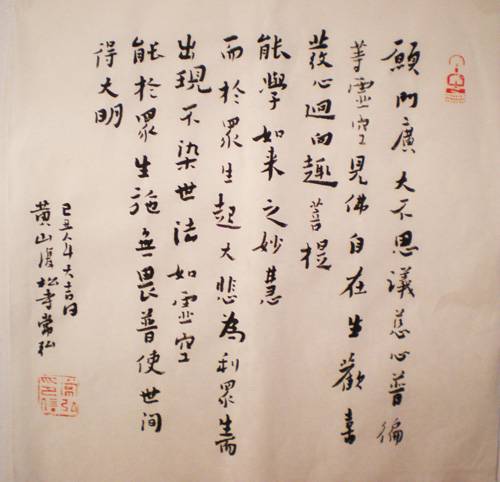 願門廣大不思議慈心普徧
等靈空見佛自在生歡喜
發心迴向趣菩提
能學如来之妙慧
而於眾生起大悲為利眾生而
出現不染世法如靈空
能於眾生施無畏普使世间
得大明
己丑年大吉日
黄山復松寺常弘
常弘